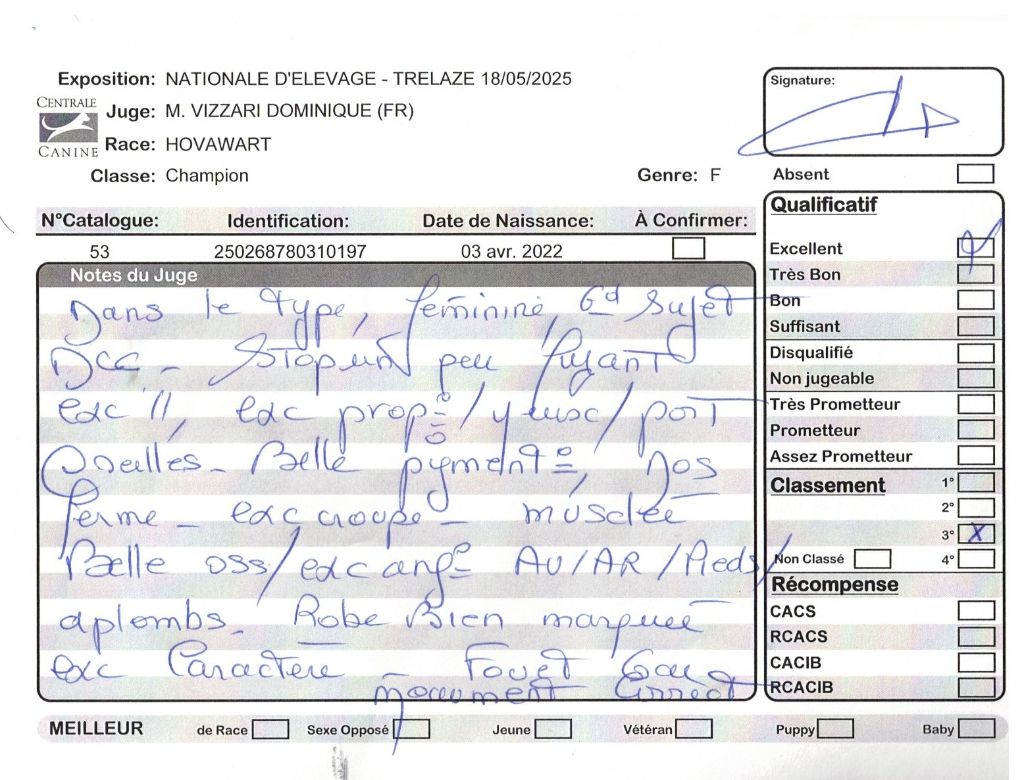 Exposition: NATIONALE D'ELEVAGE - TRELAZE 18/05/2025
CENTRALE CANINE
Juge: M. VIZZARI DOMINIQUE (FR)
Race: HOVAWART
Classe: Champion Genre: F
Signature:
Absent
N°Catalogue: Identification: Date de Naissance: À Confirmer:
53 250268780310197 03 avr. 2022
Notes du Juge
Dans le Type, féminine, Gd Sujet
DCC - Stop un peu fuyant
exc //, exc prop° / yeux / port
Oreilles - Belle pigment°, Dos
ferme - exc croupe - musclée
Belle oss / exc ang° AV/AR / Pieds /
aplombs - Robe Bien marquée
exc Caractère - Fouet
mouvement correct
Qualificatif
Excellent
Très Bon
Bon
Suffisant
Disqualifié
Non jugeable
Très Prometteur
Prometteur
Assez Prometteur
Classement 1°
2°
3° X
Non Classé 4°
Récompense
CACS
RCACS
CACIB
RCACIB
MEILLEUR de Race Sexe Opposé Jeune Vétéran Puppy Baby